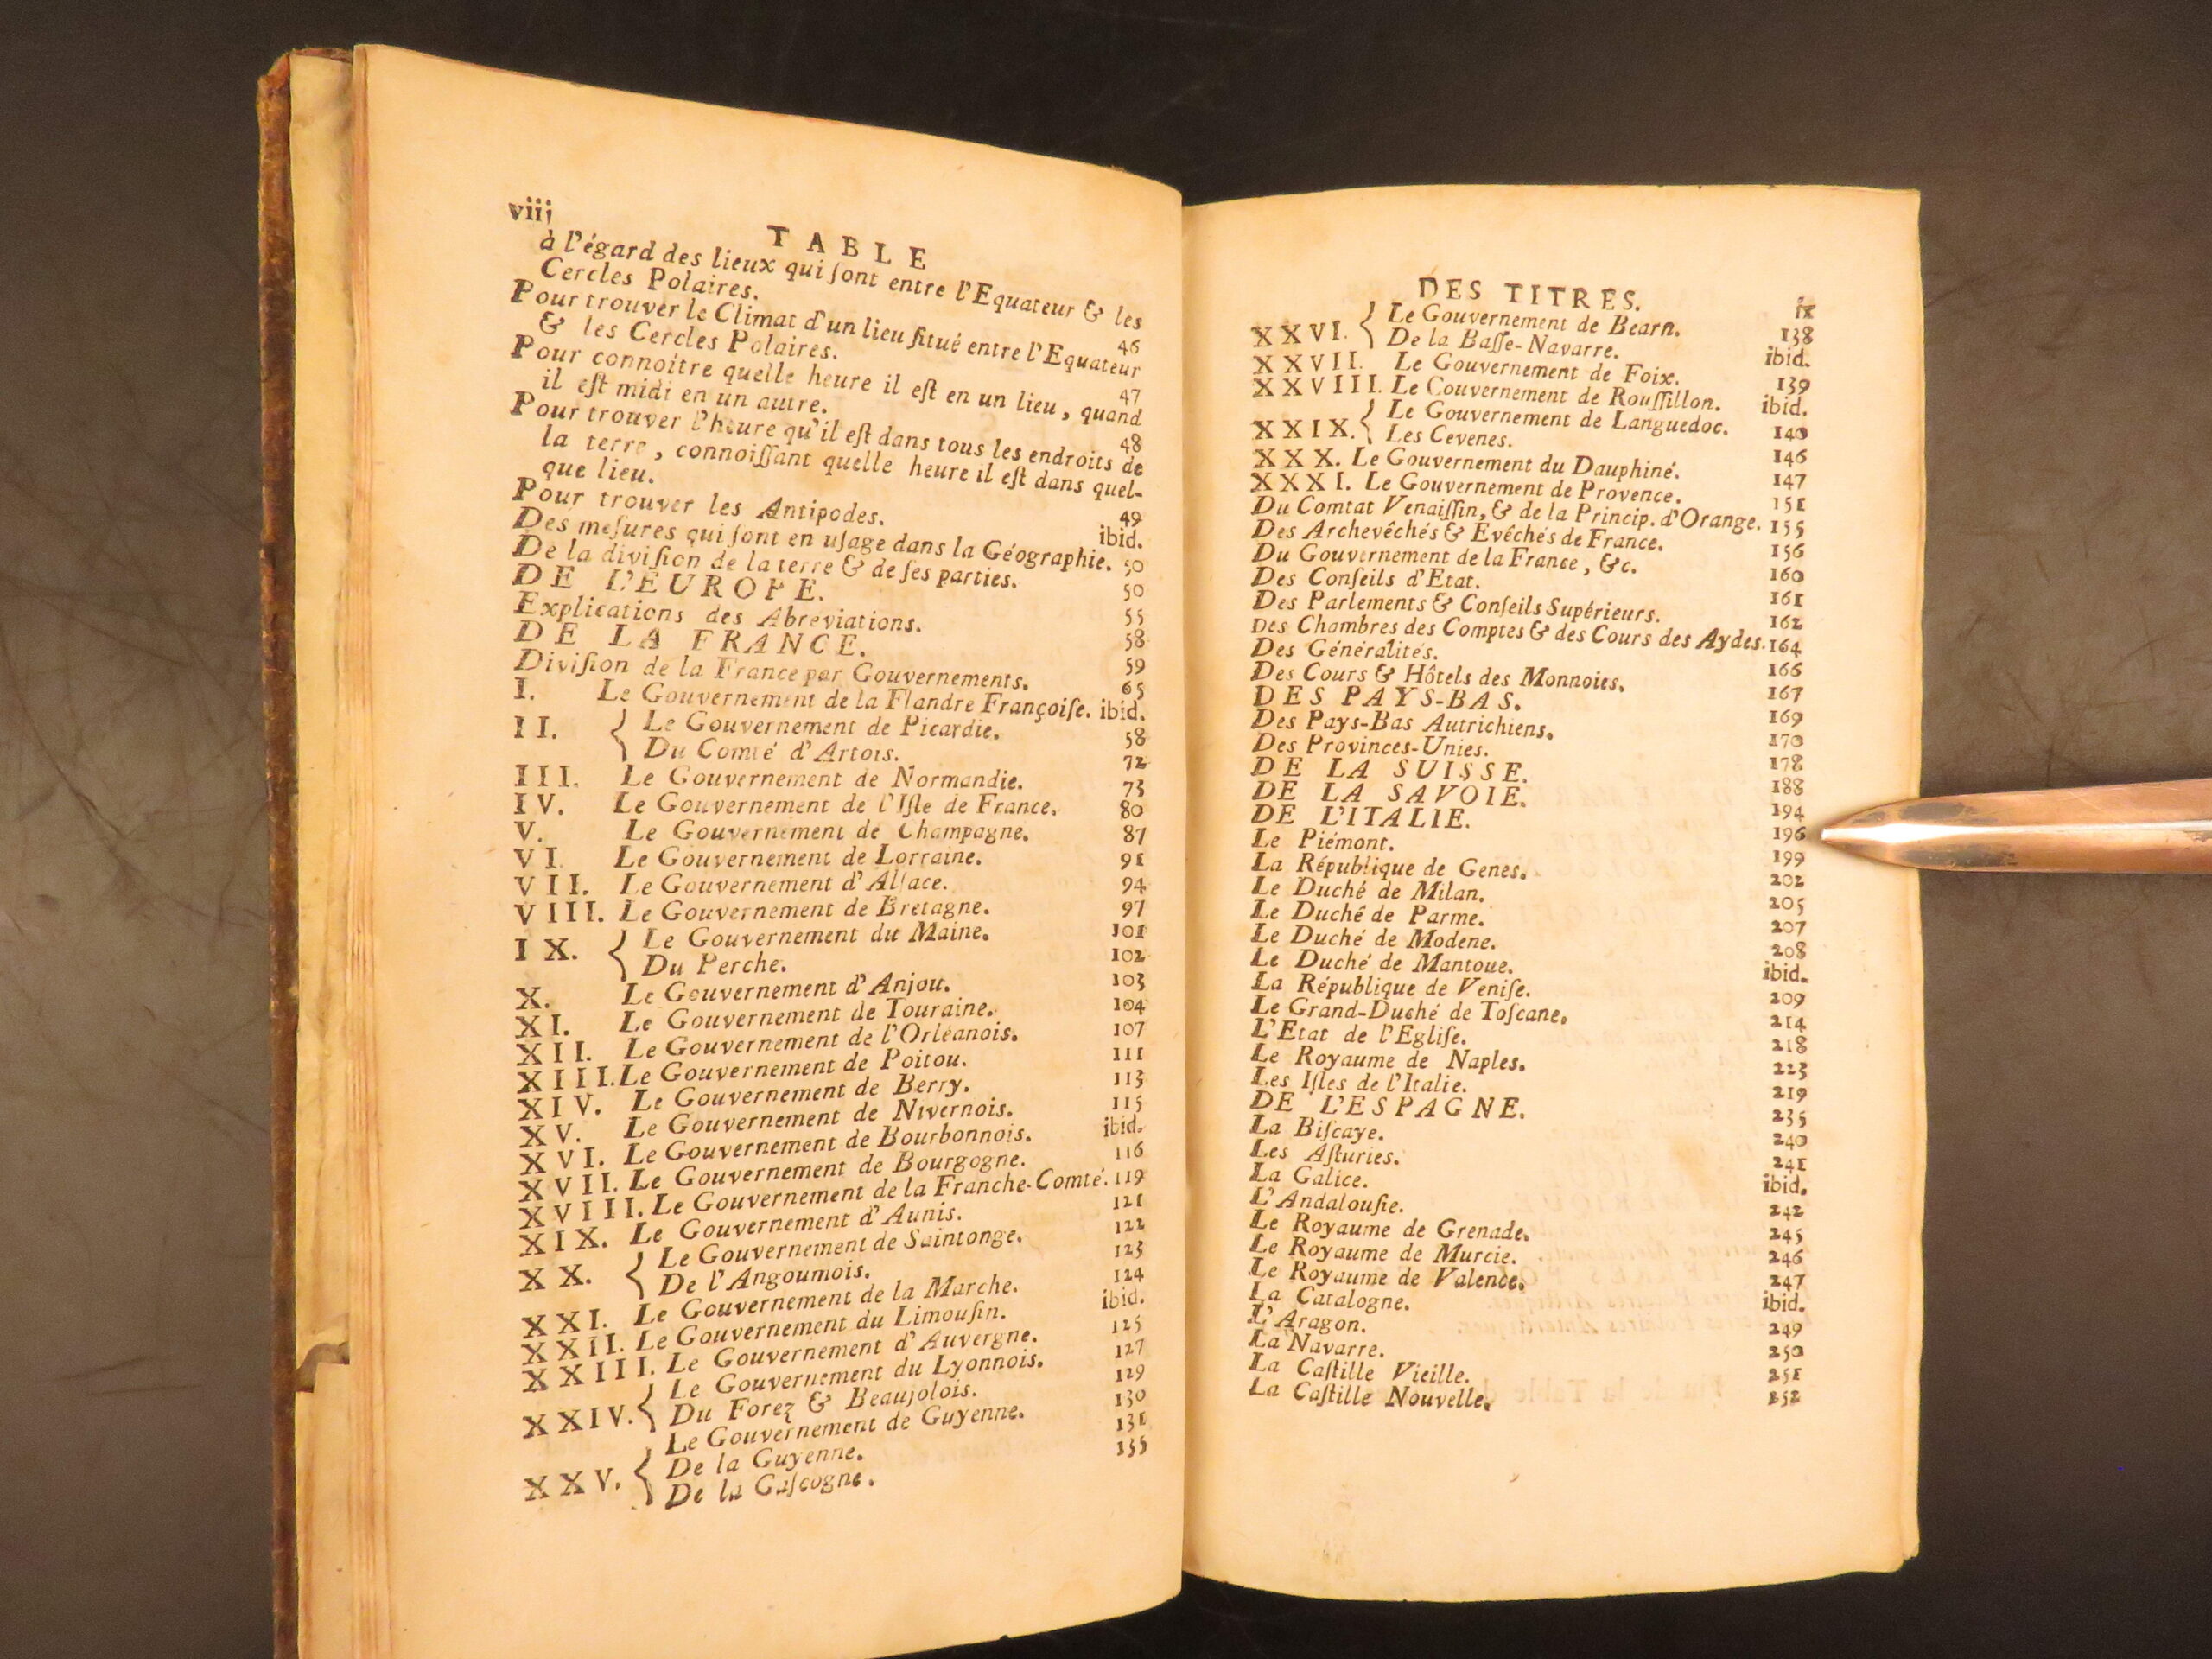 viij
TABLE
à l'égard des lieux qui ſont entre l'Equateur & les
Cercles Polaires. 46
Pour trouver le Climat d'un lieu ſitué entre l'Equateur
& les Cercles Polaires. 47
Pour connoître quelle heure il eſt en un lieu, quand
il eſt midi en un autre. 48
Pour trouver l'heure qu'il eſt dans tous les endroits de
la terre, connoiſſant quelle heure il eſt dans quel-
que lieu. 49
Pour trouver les Antipodes. ibid.
Des meſures qui ſont en uſage dans la Géographie. 50
De la diviſion de la terre & de ſes parties. 50
DE L'EUROPE. 55
Explications des Abréviations. 58
DE LA FRANCE. 59
Diviſion de la France par Gouvernements. 65
I. Le Gouvernement de la Flandre Françoiſe. ibid.
II. { Le Gouvernement de Picardie. 58
Du Comté d'Artois. 72
III. Le Gouvernement de Normandie. 73
IV. Le Gouvernement de l'Iſle de France. 80
V. Le Gouvernement de Champagne. 87
VI. Le Gouvernement de Lorraine. 91
VII. Le Gouvernement d'Alſace. 94
VIII. Le Gouvernement de Bretagne. 97
IX. { Le Gouvernement du Maine. 101
Du Perche. 102
X. Le Gouvernement d'Anjou. 103
XI. Le Gouvernement de Touraine. 104
XII. Le Gouvernement de l'Orléanois. 107
XIII. Le Gouvernement de Poitou. 111
XIV. Le Gouvernement de Berry. 113
XV. Le Gouvernement de Nivernois. 115
XVI. Le Gouvernement de Bourbonnois. ibid.
XVII. Le Gouvernement de Bourgogne. 116
XVIII. Le Gouvernement de la Franche-Comté. 119
XIX. Le Gouvernement d'Aunis. 121
XX. { Le Gouvernement de Saintonge. 122
De l'Angoumois. 123
XXI. Le Gouvernement de la Marche. 124
XXII. Le Gouvernement du Limouſin. ibid.
XXIII. Le Gouvernement d'Auvergne. 125
XXIV. { Le Gouvernement du Lyonnois. 127
Du Forez & Beaujolois. 129
XXV. { Le Gouvernement de Guyenne. 130
De la Guyenne. 131
De la Gaſcogne. 135
DES TITRES. ix
XXVI. { Le Gouvernement de Bearn. 138
De la Baſſe-Navarre. ibid.
XXVII. Le Gouvernement de Foix. 139
XXVIII. Le Couvernement de Rouſſillon. ibid.
XXIX. { Le Gouvernement de Languedoc. 140
Les Cevenes. 146
XXX. Le Gouvernement du Dauphiné. 147
XXXI. Le Gouvernement de Provence. 151
Du Comtat Venaiſſin, & de la Princip. d'Orange. 155
Des Archevêchés & Evêchés de France. 156
Du Gouvernement de la France, &c. 160
Des Conſeils d'Etat. 161
Des Parlements & Conſeils Supérieurs. 162
Des Chambres des Comptes & des Cours des Aydes. 164
Des Généralités. 166
Des Cours & Hôtels des Monnoies. 167
DES PAYS-BAS. 169
Des Pays-Bas Autrichiens. 170
Des Provinces-Unies. 178
DE LA SUISSE. 188
DE LA SAVOIE. 194
DE L'ITALIE. 196
Le Piémont. 199
La République de Genes. 202
Le Duché de Milan. 205
Le Duché de Parme. 207
Le Duché de Modene. 208
Le Duché de Mantoue. ibid.
La République de Veniſe. 209
Le Grand-Duché de Toſcane. 214
L'Etat de l'Egliſe. 218
Le Royaume de Naples. 223
Les Iſles de l'Italie. 219
DE L'ESPAGNE. 235
La Biſcaye. 240
Les Aſturies. 241
La Galice. ibid.
L'Andalouſie. 242
Le Royaume de Grenade. 245
Le Royaume de Murcie. 246
Le Royaume de Valence. 247
La Catalogne. ibid.
L'Aragon. 249
La Navarre. 250
La Caſtille Vieille. 251
La Caſtille Nouvelle. 252